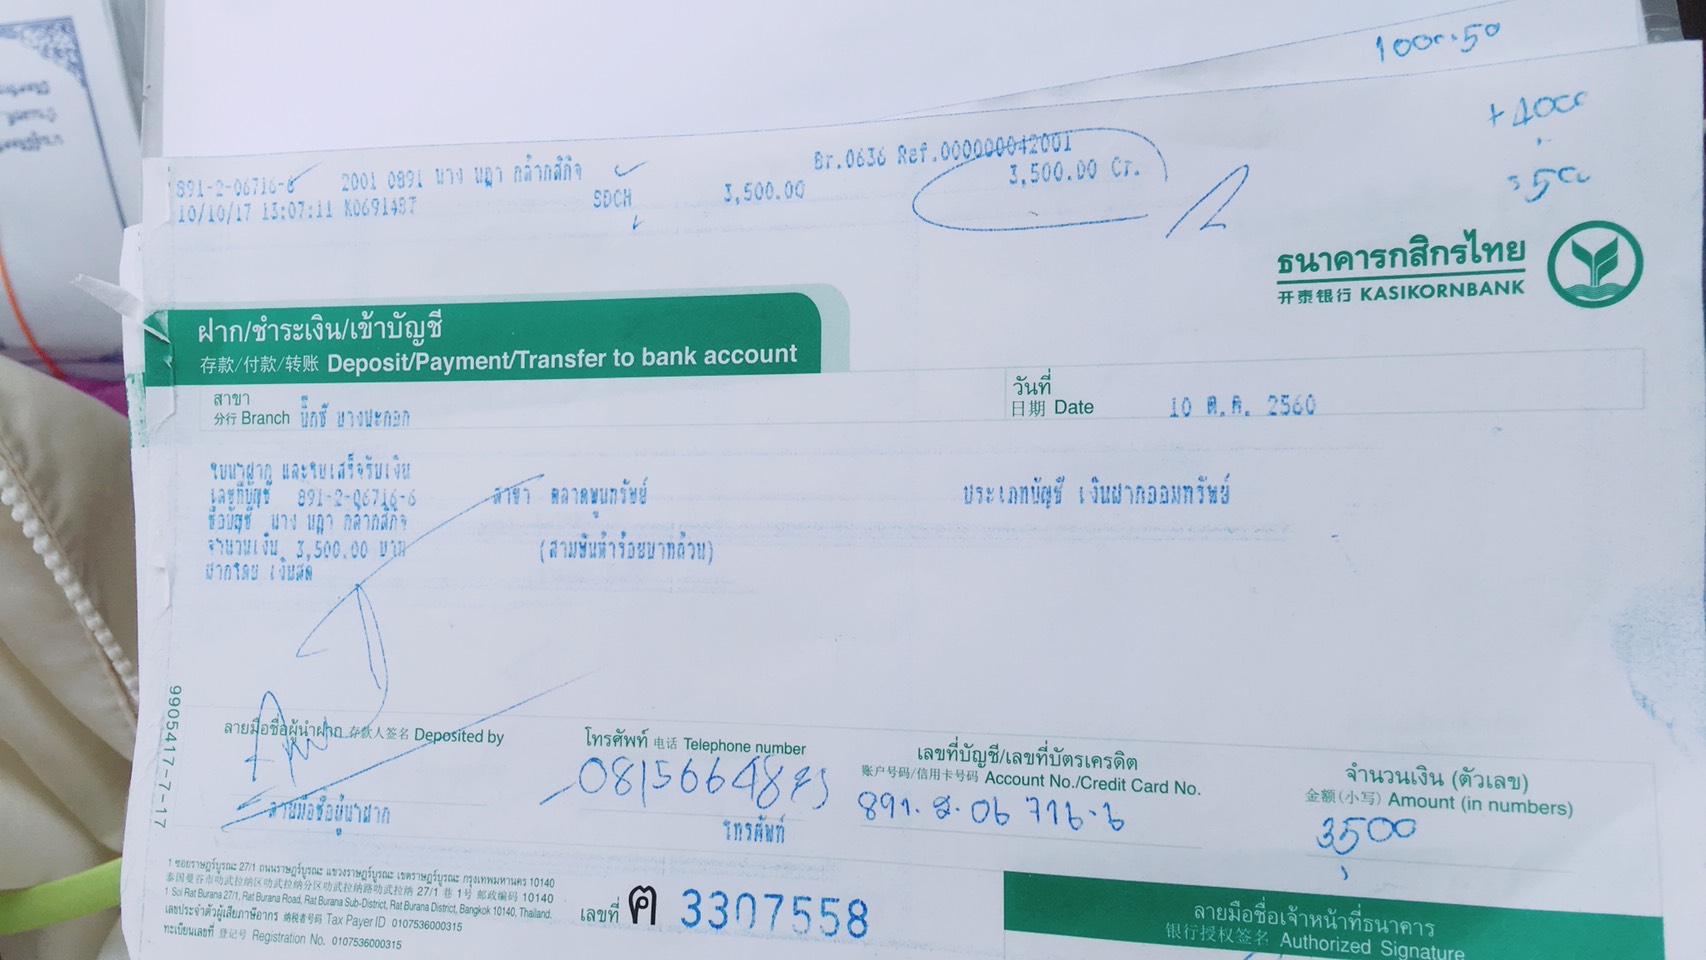 1000.50
+4000
3500
Br.0636 Ref.000000042001
891-2-06716-6 2001 0891 นาง นฎา กล้ากสิกิจ SDCH 3,500.00 3,500.00 Cr.
10/10/17 13:07:11 K0691487
ธนาคารกสิกรไทย
开泰银行 KASIKORNBANK
ฝาก/ชำระเงิน/เข้าบัญชี
存款/付款/转账 Deposit/Payment/Transfer to bank account
สาขา
分行 Branch บิ๊กซี บางปะกอก
วันที่
日期 Date 10 ต.ค. 2560
ใบนำฝาก และใบเสร็จรับเงิน
เลขที่บัญชี 891-2-06716-6 สาขา ตลาดพูนทรัพย์ ประเภทบัญชี เงินฝากออมทรัพย์
ชื่อบัญชี นาง นฎา กล้ากสิกิจ
จำนวนเงิน 3,500.00 บาท (สามพันห้าร้อยบาทถ้วน)
ฝากโดย เงินสด
9905417-7-17
ลายมือชื่อผู้นำฝาก 存款人签名 Deposited by
โทรศัพท์ 电话 Telephone number
เลขที่บัญชี/เลขที่บัตรเครดิต
账户号码/信用卡号码 Account No./Credit Card No.
จำนวนเงิน (ตัวเลข)
金额(小写) Amount (in numbers)
891.2.06 716-6
3500
ลายมือชื่อผู้นำฝาก
โทรศัพท์
1 ซอยราษฎร์บูรณะ 27/1 ถนนราษฎร์บูรณะ แขวงราษฎร์บูรณะ เขตราษฎร์บูรณะ กรุงเทพมหานคร 10140
泰国曼谷市叻武拉纳区叻武拉纳分区叻武拉纳路叻武拉纳 27/1 巷 1号 邮政编码 10140
1 Soi Rat Burana 27/1, Rat Burana Road, Rat Burana Sub-District, Rat Burana District, Bangkok 10140, Thailand.
เลขประจำตัวผู้เสียภาษีอากร 纳税者号码 Tax Payer ID 0107536000315
ทะเบียนเลขที่ 登记号 Registration No. 0107536000315
เลขที่ ฅ 3307558
ลายมือชื่อเจ้าหน้าที่ธนาคาร
银行授权签名 Authorized Signature